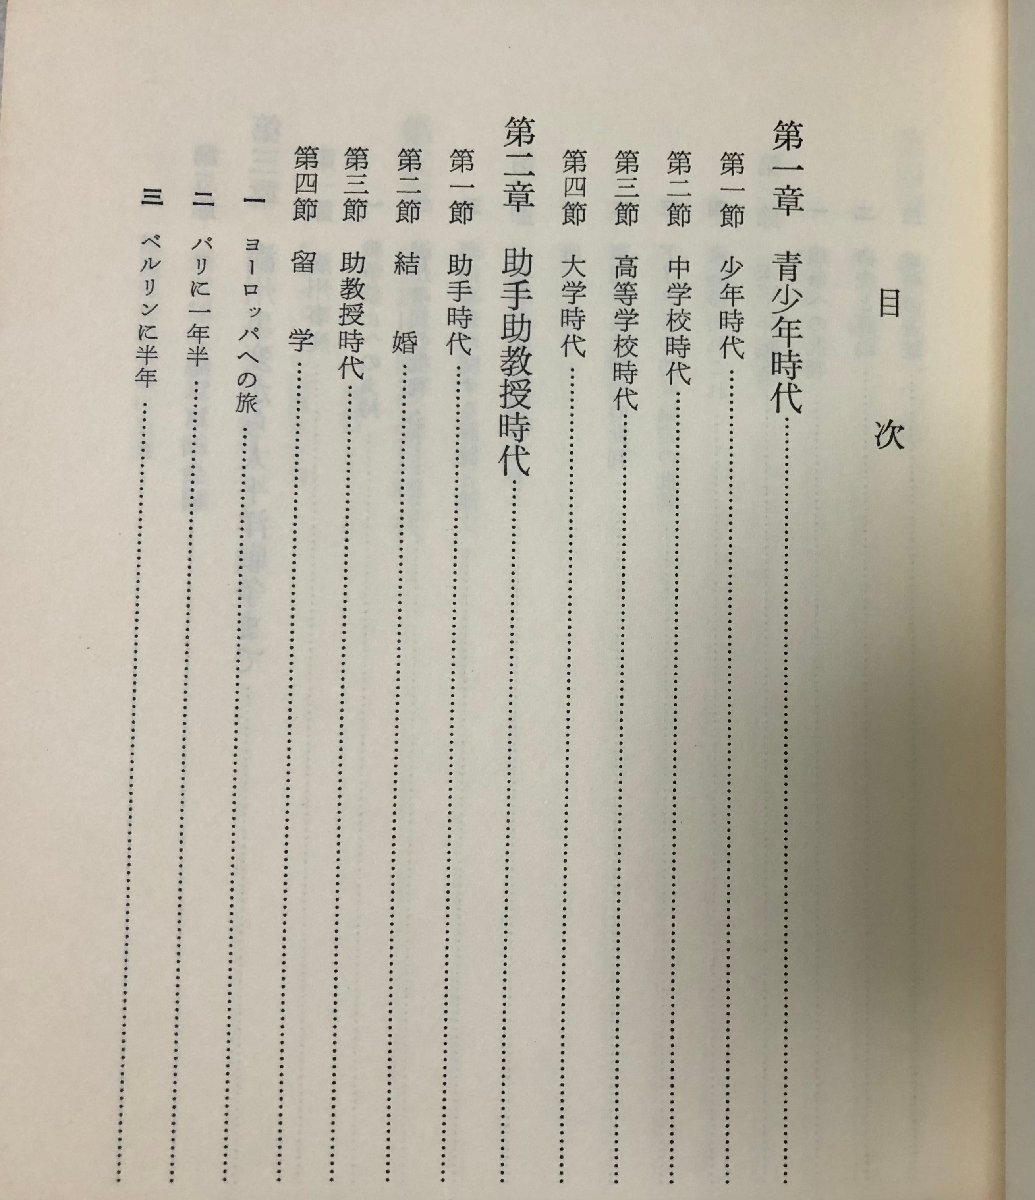 目次
第一章 青少年時代
第一節 少年時代
第二節 中学校時代
第三節 高等学校時代
第四節 大学時代
第二章 助手助教授時代
第一節 助手時代
第二節 結婚
第三節 助教授時代
第四節 留学
一 ヨーロッパへの旅
二 パリに一年半
三 ベルリンに半年